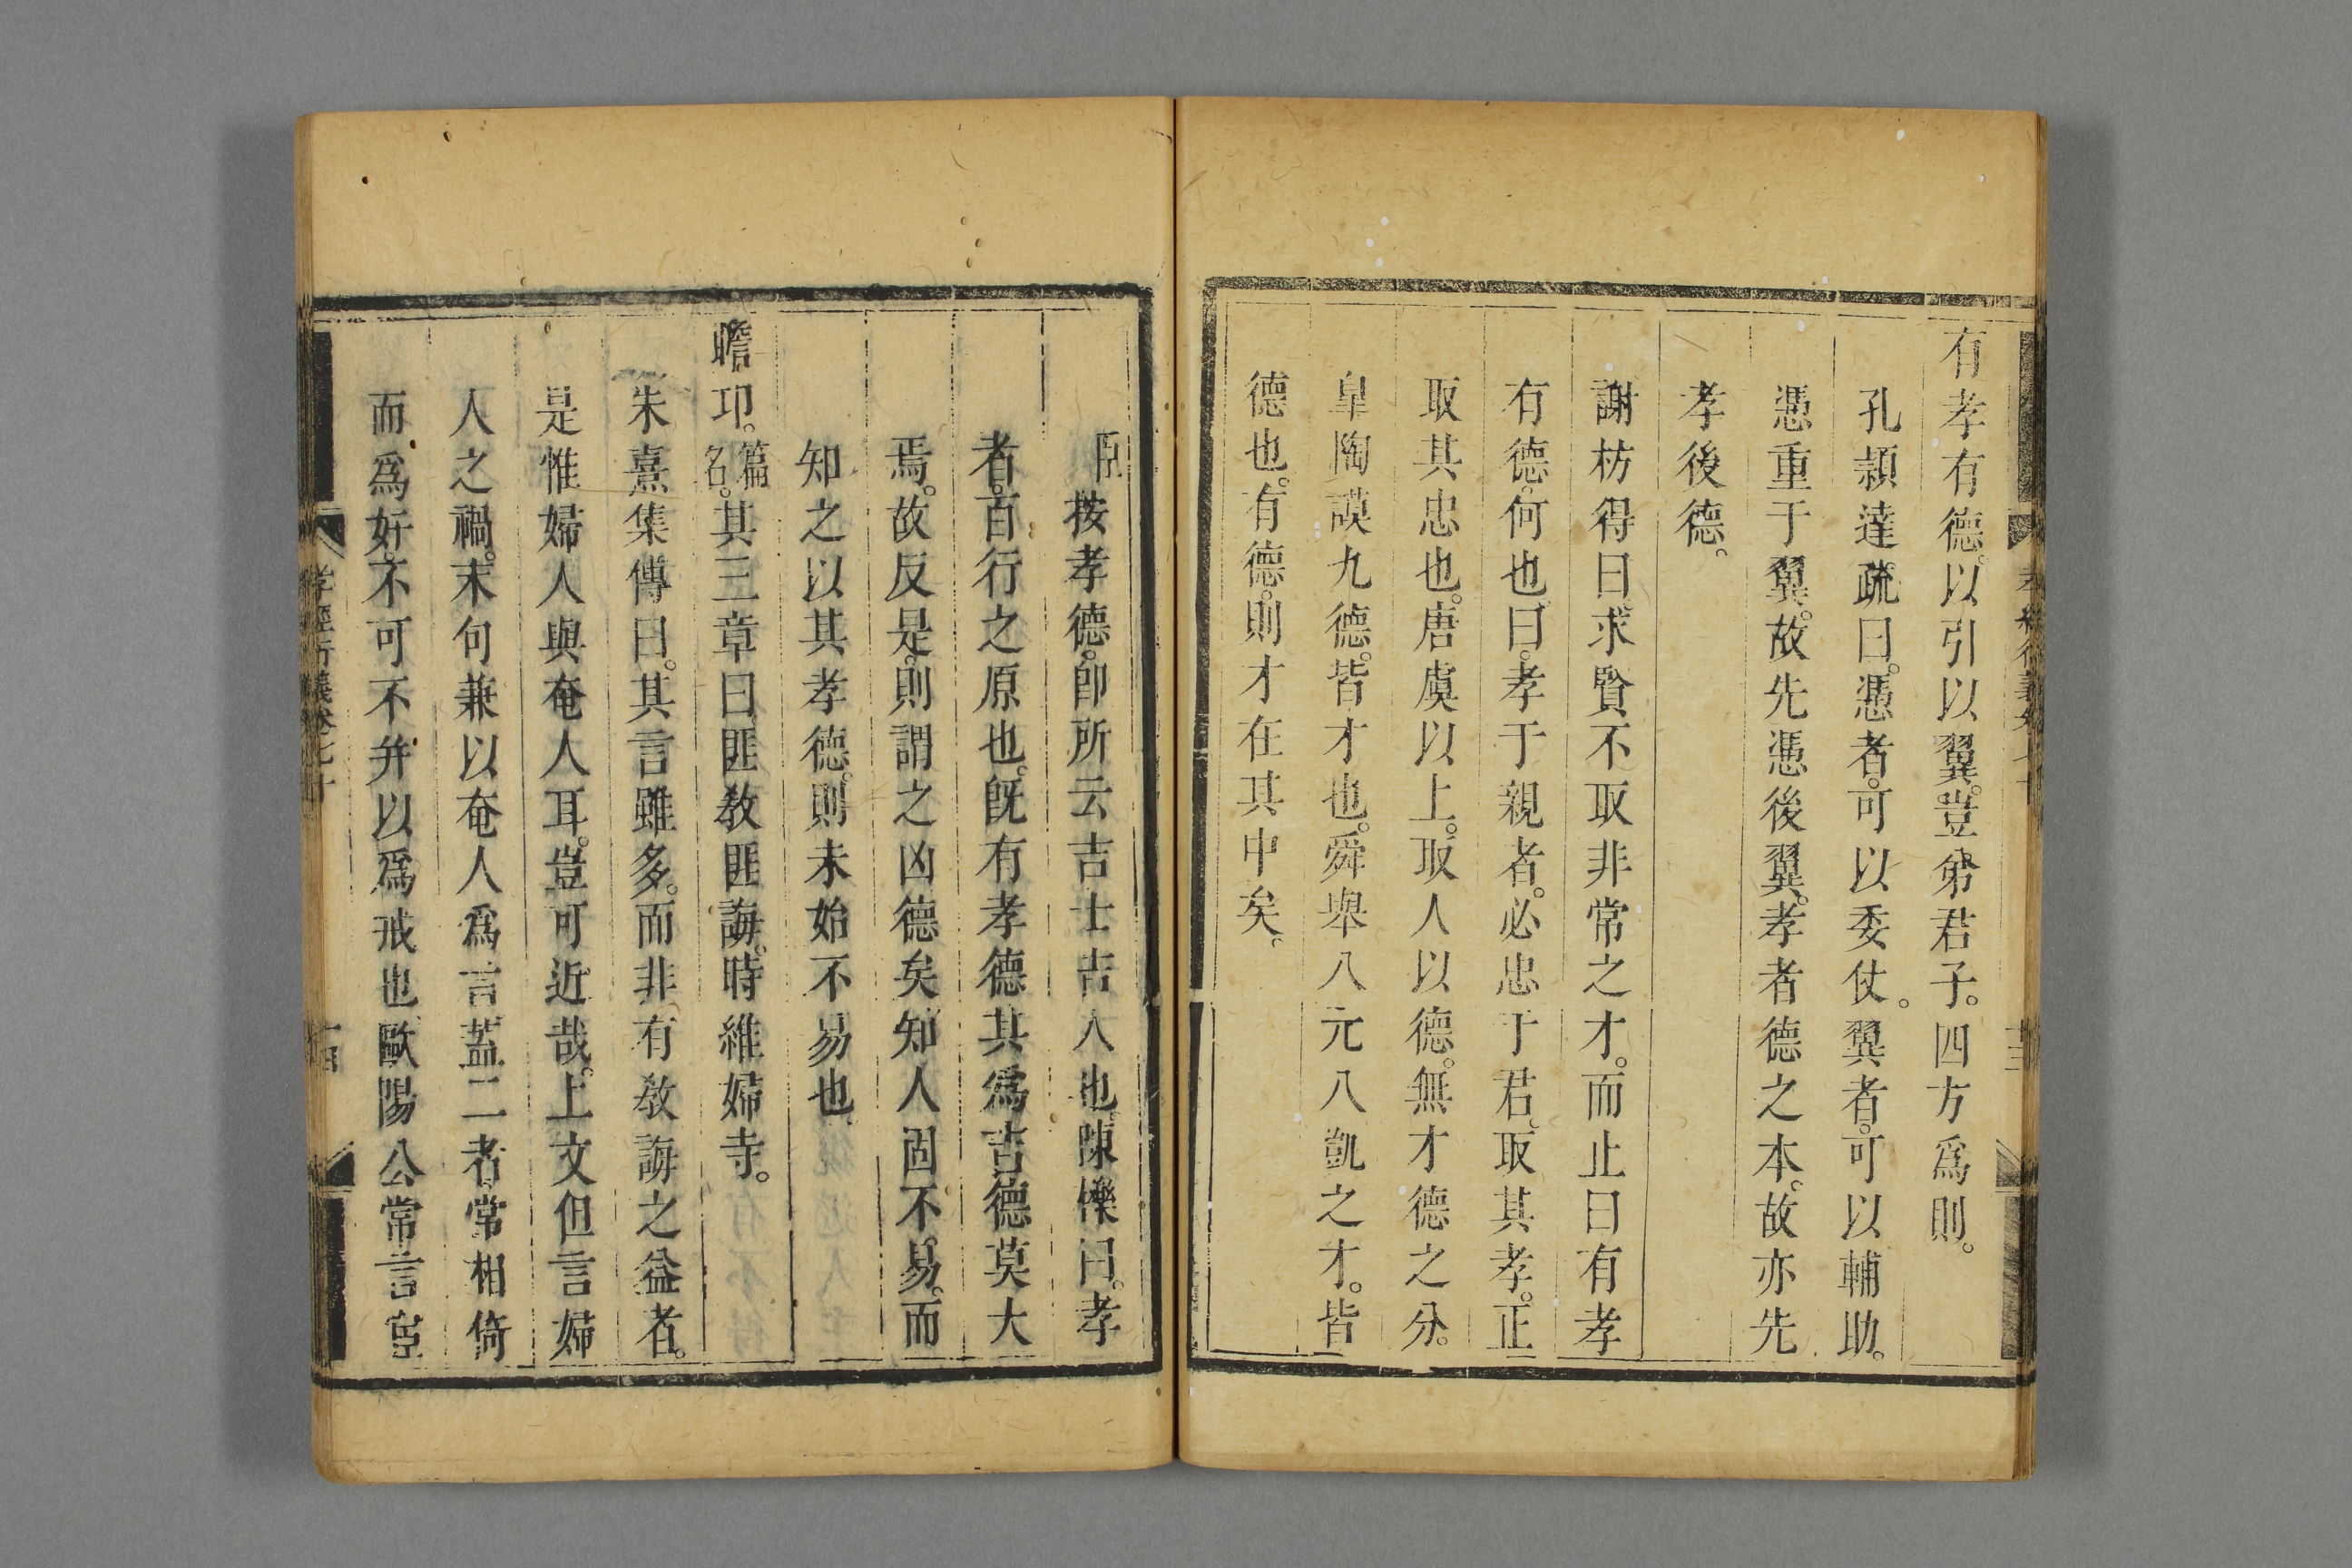 有孝有德。以引以翼。豈弟君子。四方爲則。
孔穎達疏曰。憑者。可以委仗。翼者。可以輔助。
憑重于翼。故先憑後翼。孝者德之本。故亦先
孝後德。
謝枋得曰。求賢不取非常之才。而止曰有孝
有德。何也。曰。孝于親者。必忠于君。取其孝。正
取其忠也。唐虞以上。取人以德。無才德之分。
皐陶謨九德。皆才也。舜舉八元八凱之才。皆
德也。有德。則才在其中矣。
臣按孝德。卽所云吉士吉人也。陳櫟曰。孝
者。百行之原也。旣有孝德。其爲吉德莫大
焉。故反是。則謂之凶德矣。知人固不易。而
知之以其孝德。則未始不易也。
瞻卬。篇名。其三章曰。匪敎匪誨。時維婦寺。
朱熹集傳曰。其言雖多。而非有敎誨之益者。
是惟婦人與奄人耳。豈可近哉。上文但言婦
人之禍。末句兼以奄人爲言。蓋二者。常相倚
而爲奸。不可不并以爲戒也。歐陽公常言宦
孝經衍義卷七十
十四
十三